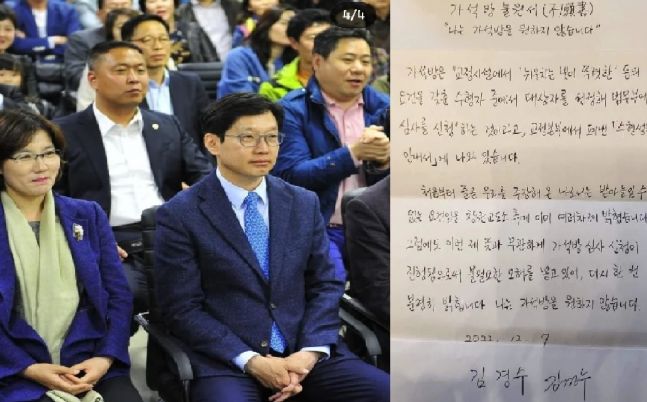 4/4
가석방 불원서 (不願書)
"나는 가석방을 원하지 않습니다"
가석방은 '교정시설에서 "뉘우치는 빛이 뚜렷한" 등의
요건을 갖춘 수형자 중에서 대상자를 선정해 법무부에
심사를 신청'하는 것이라고, 교정본부에서 펴낸 「수형생활
안내서」에 나와 있습니다.
처음부터 줄곧 무죄를 주장해 온 나로서는 받아들일 수
없는 요건임을 창원교도소 측에 이미 여러차례 밝혔습니다.
그럼에도 이번 제 뜻과 무관하게 가석방 심사 신청이
진행됨으로써 불필요한 오해를 낳고 있어, 다시 한 번
분명히 밝힙니다. 나는 가석방을 원하지 않습니다.
2022. 12. 7
김 경 수 김경수